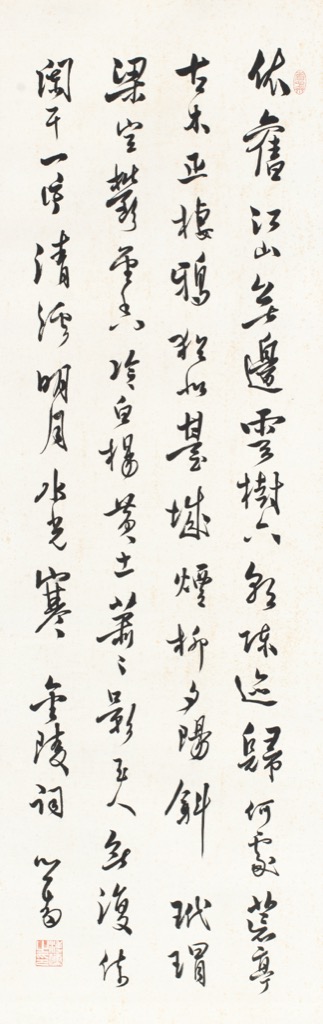 依舊江山無邊雲樹六朝陳迹歸何處荒亭
古木亞棲鴉猶似臺城煙柳夕陽斜 玳瑁
梁空鬱金堂冷白楊黃土蕭〻影玉人無復倚
闌干一片清溪明月水光寒 金陵詞 心畬